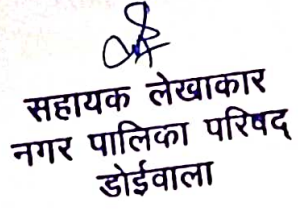 सहायक लेखाकार
नगर पालिका परिषद्
डोईवाला